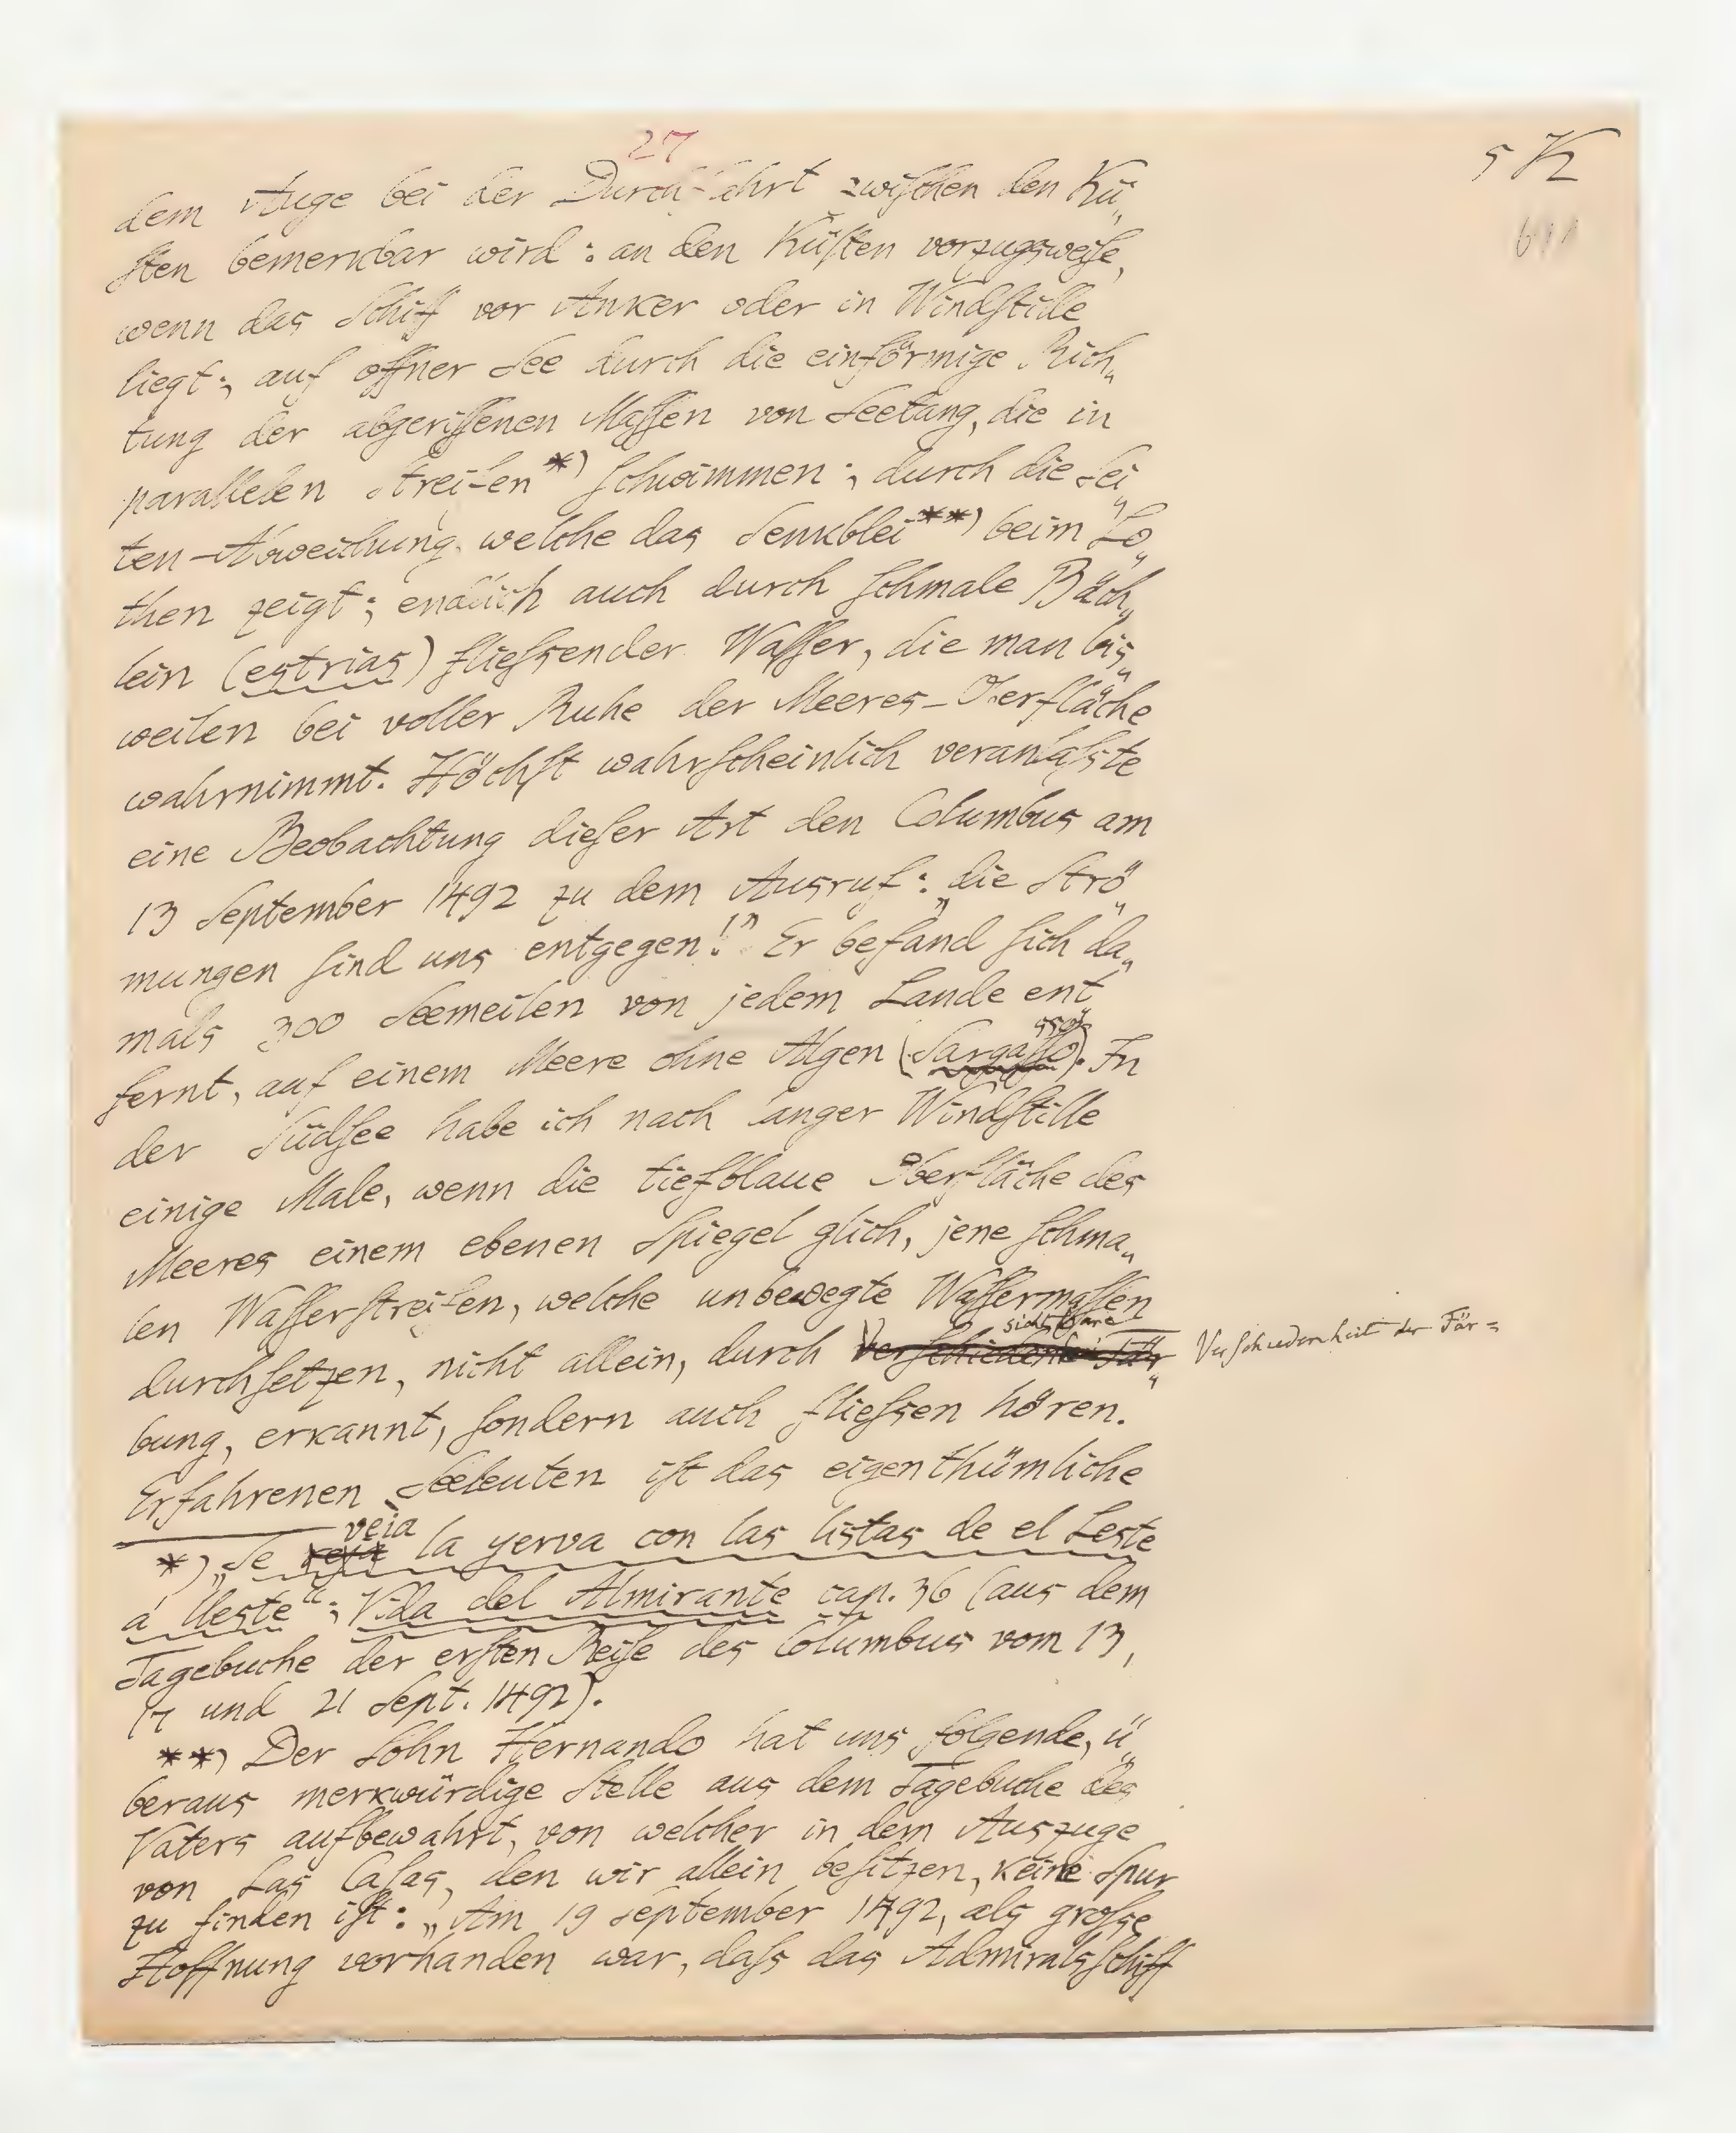 27
5 K
611
dem Auge bei der Durchfahrt zwischen den Kü„
sten bemerkbar wird: an den Küsten vorzugsweise,
wenn das Schiff vor Anker oder in Windstille
liegt; auf offner See durch die einförmige Rich„
tung der abgerissenen Massen von Seetang, die in
parallelen Streifen*) schwimmen; durch die Sei„
ten-Abweichung, welche das Senkblei**) beim Lo„
then zeigt; endlich auch durch schmale Bäch„
lein (estrias) fliessender Wasser, die man bis„
weilen bei voller Ruhe der Meeres-Oberfläche
wahrnimmt. Höchst wahrscheinlich veranlasste
eine Beobachtung dieser Art den Columbus am
13 September 1492 zu dem Ausruf: „die Strö„
mungen sind uns entgegen!” Er befand sich da„
mals 300 Seemeilen von jedem Lande ent„
fernt, auf einem Meere ohne Algen (Sargasso). In
der Südsee habe ich nach langer Windstille
einige Male, wenn die tiefblaue Oberfläche des
Meeres einem ebenen Spiegel glich, jene schma„
len Wasserstreifen, welche unbewegte Wassermassen
sichtbare
durchsetzen, nicht allein, durch Verschiedenheit Fär„ Verschiedenheit der Fär=
bung, erkannt, sondern auch fliessen hören.
Erfahrenen Seeleuten ist das eigenthümliche
veia
*) „Se la yerva con las listas de el Leste
á Ueste“; Vida del Almirante cap. 36 (aus dem
Tagebuche der ersten Reise des Columbus vom 13,
17 und 21 Sept. 1492).
**) Der Sohn Hernando hat uns folgende, ü„
beraus merkwürdige Stelle aus dem Tagebuche des
Vaters aufbewahrt, von welcher in dem Auszuge
von Las Casas, den wir allein besitzen, keine Spur
zu finden ist: „Am 19 September 1492, als grosse
Hoffnung vorhanden war, dass das Admiralsschiff